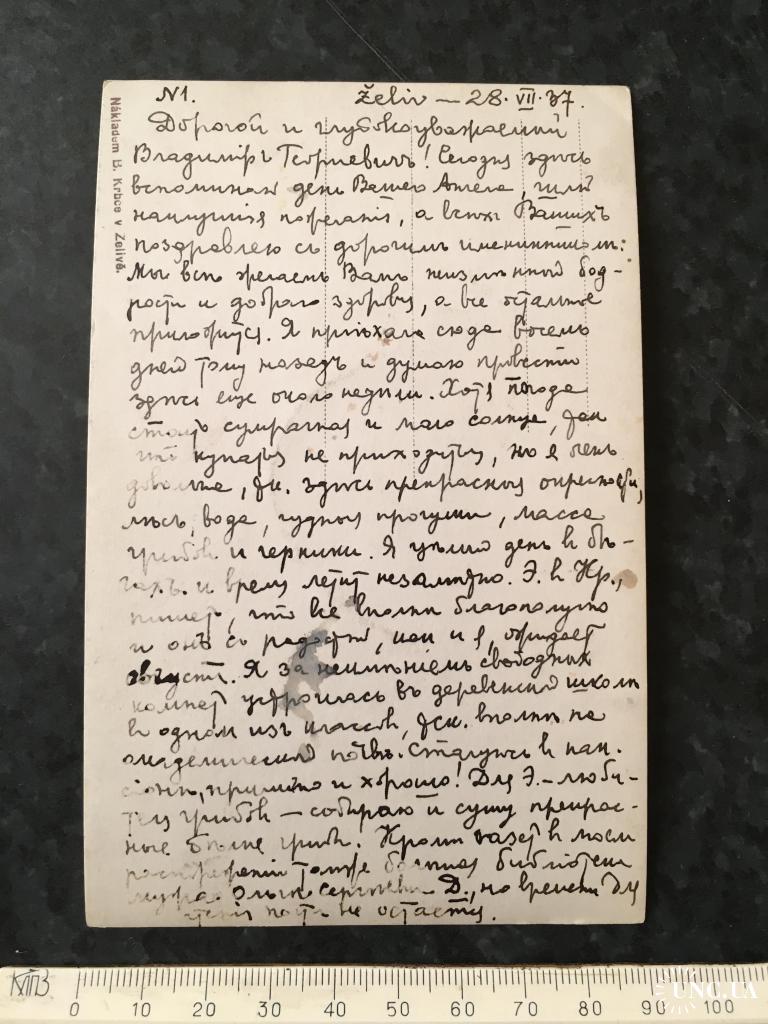 N1. Želiv — 28. VII. 37.
Дорогой и глубокоуважаемый
Владимiръ Георгиевичъ! Сегодня здѣсь
вспоминаю день Вашего Ангела, шлю
наилучшiя пожеланiя, а всѣхъ Вашихъ
поздравляю съ дорогимъ именинникомъ:
Мы всѣ желаемъ Вамъ жизненной бод-
рости и добраго здоровья, а все остальное
приложится. Я прiѣхала сюда восемь
дней тому назадъ и думаю провести
здѣсь еще около недѣли. Хотя погода
стоитъ сумрачная и мало солнца, так
что купаться не приходится, но я очень
довольна, т.к. здѣсь прекрасныя окрестности,
лѣсъ, вода, чудныя прогулки, масса
грибов и черники. Я цѣлый день в бѣ-
гахъ и время летит незамѣтно. Э. в Кр.,
пишет, что все вполнѣ благополучно
и онъ съ радостью, как и я, ожидает
август. Я за неимѣнiемъ свободных
комнат устроилась въ деревенской школѣ
в одном изъ классов, т.ск. вполнѣ на
академической почвѣ. Столуюсь в пан-
сiонѣ, прилично и хорошо! Для Э. – люби-
теля грибов – собираю и сушу прекрас-
ные бѣлые грибы. Кромѣ газет в моем
распоряженiи также большая библiотека
мужа Ольги Сергѣевны Д., но времени для
чтенiя почти не остается.
Nákladem B. Krbce v Želivě.
КЛПЗ
0 10 20 30 40 50 60 70 80 90 100
UNC.UA